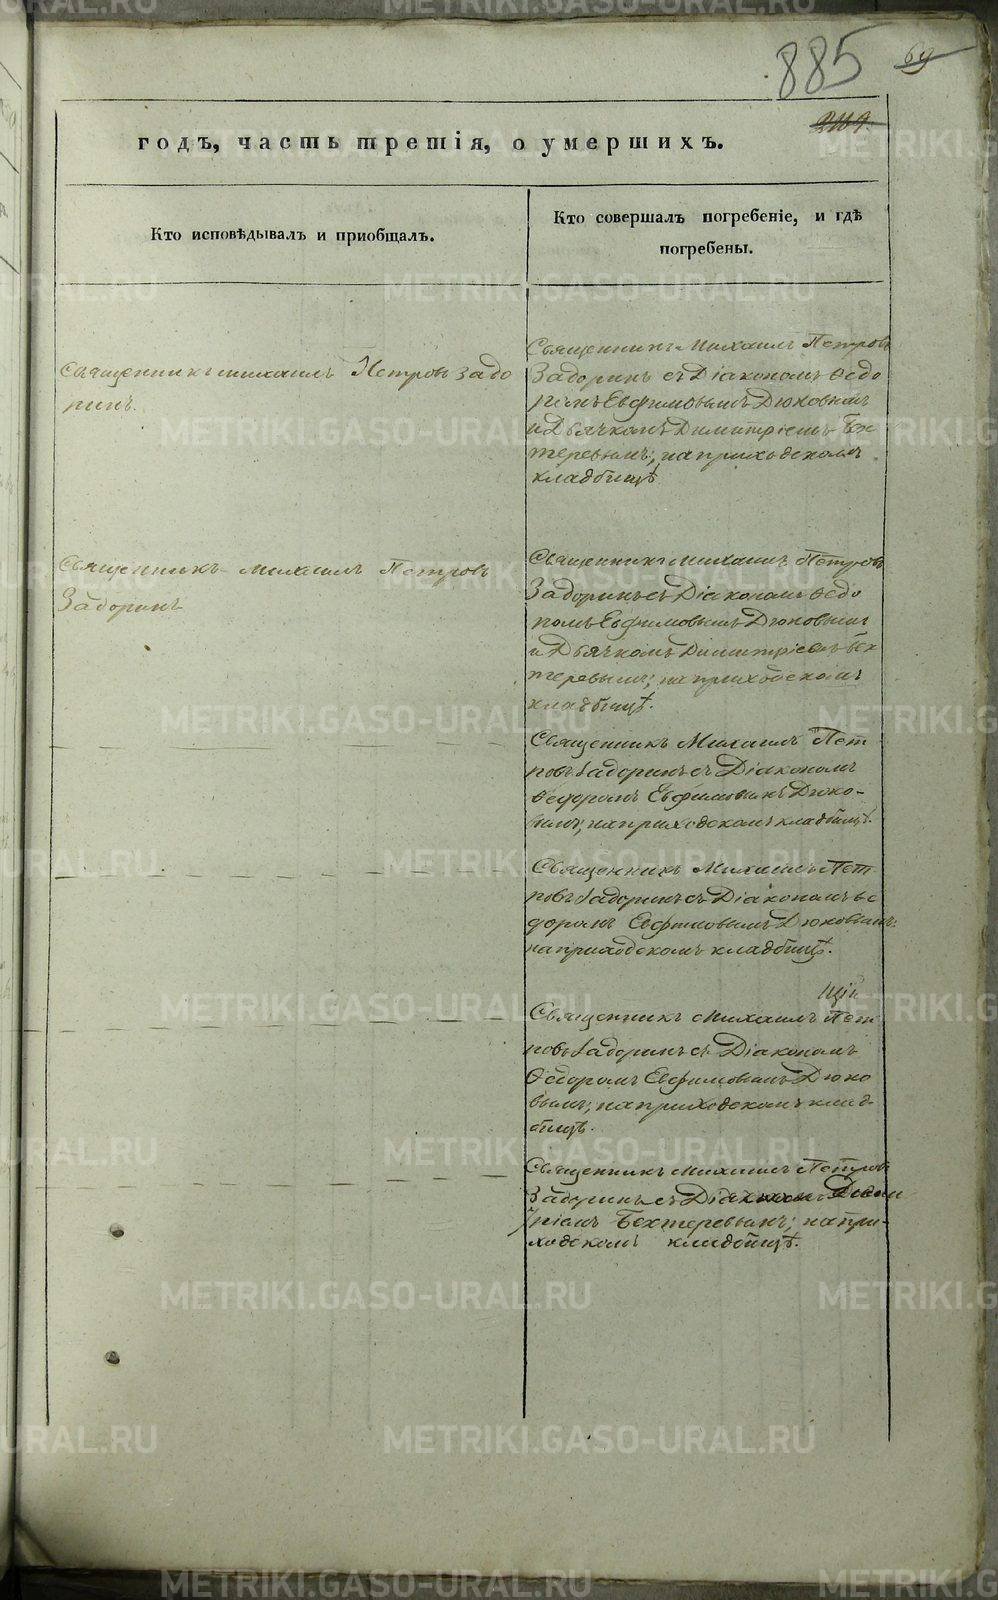 885
69
219.
годъ, часть третія, о умершихъ.
Кто исповѣдывалъ и приобщалъ.
Кто совершалъ погребеніе, и гдѣ
погребены.
Священникъ Михаилъ Петровъ Задо
ринъ.
Священникъ Михаилъ Петровъ
Задоринъ съ Діакономъ Ѳедо
Евфимовымъ Дюковымъ
и Дьячкомъ Димитріемъ Бех
теревымъ; на приходскомъ
кладбищѣ
Священникъ Михаилъ Петровъ
Задоринъ
Священникъ Михаилъ Петровъ
Задоринъ съ Діакономъ Ѳедо
ромъ Евфимовымъ Дюковымъ
и Дьячкомъ Димитріемъ Бех
теревымъ; на приходскомъ
кладбищѣ.
Священникъ Михаилъ Пет
ровъ Задоринъ съ Діакономъ
Ѳедоромъ Евфимовымъ Дюко-
вымъ; на приходскомъ кладбищѣ.
Священникъ Михаилъ Пет
ровъ Задоринъ съ Діакономъ Ѳе
доромъ Евфимовымъ Дюковымъ:
на приходскомъ кладбищѣ.
Священникъ Михаилъ Пет
ровъ Задоринъ съ Діакономъ
Ѳедоромъ Евфимовымъ Дюко
вымъ; на приходскомъ клад-
бищѣ.
Священникъ Михаилъ Петровъ
Задоринъ съ
Бехтеревымъ; на при-
ходскомъ кладбищѣ.
METRIKI.GASO-URAL.RU